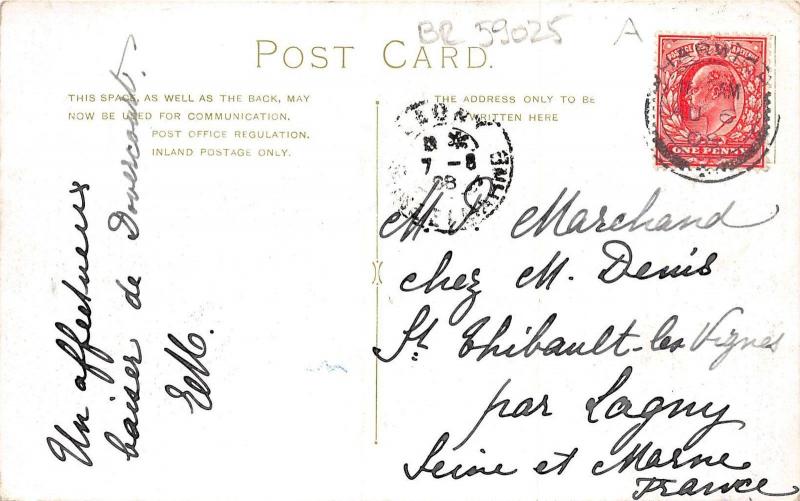 BR 59025
A
POST CARD.
THIS SPACE, AS WELL AS THE BACK, MAY
NOW BE USED FOR COMMUNICATION.
POST OFFICE REGULATION.
INLAND POSTAGE ONLY.
THE ADDRESS ONLY TO BE
WRITTEN HERE
POSTAGE
ONE PENNY
HARWICH
7-8
08
Un affectueux
baiser de Dovercourt.
EM.
M. Marchand
chez M. Denis
St. Thibault-les Vignes
par Lagny
Seine et Marne
France